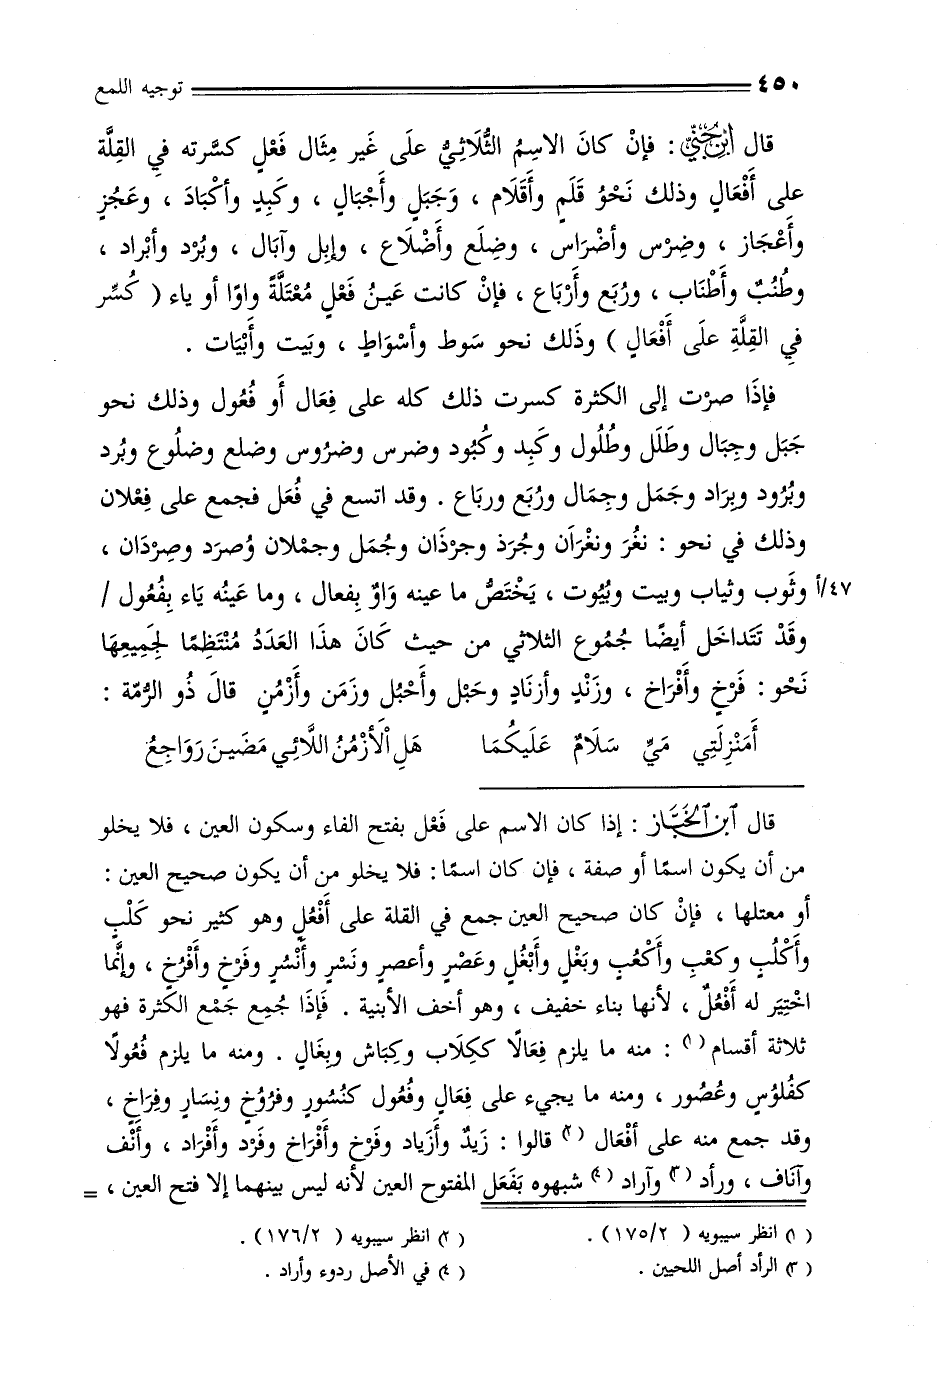 ٤٥٠ توجيه اللمع
قال ابن جني : فإنْ كانَ الاسِمُ الثُّلَاثِيُّ علَى غَير مِثَال فَعْلٍ كسَّرته فيِ القِلَّة
على أَفْعَالٍ وذلك نَحْوُ قَلَمٍ وأَقَلَام ، وَجَبَلٍ وأَجْبَالٍ ، وكَبِدٍ وأكْبَادَ ، وعَجُزٍ
وأَعْجَاز ، وضِرْس وأضْرَاس ، وضِلَع وأَضْلَاع ، وإبِل وآبَال ، وبُرْد وأبْراد ،
وطُنُبٌ وأَطْنَاب ، ورُبَع وأَرْبَاع ، فإنْ كانت عَينُ فَعْلٍ مُعْتَلَّةً واوًا أو ياء ( كُسِّر
فيِ القِلَّةِ علَى أَفْعَالٍ ) وذَلك نحو سَوط وأسْوَاطٍ ، وبَيت وأَبْيَات .
فإذَا صرْت إلى الكثرة كسرت ذلك كله على فِعَال أَو فُعُول وذلك نحو
جَبَل وجِبَال وطَلَل وطُلُول وكَبِد وكُبُود وضرس وضرُوس وضلع وضلُوع وبُرد
وبُرُود وبِرَاد وجَمَل وجِمَال ورُبَع ورباع . وقد اتسع في فُعَل فجمع على فِعْلان
وذلك في نحو : نغُرَ ونغْرَآن وجُرَذ وجرْذَان وجُمَل وجمْلان وُصرَد وصِرْدَان ،
وثَوب وثياب وبيت وبُيُوت ، يَخْتَصُّ ما عينه وَاوٌ بِفعال ، وما عَينُه يَاء بِفُعُول / ٤٧/أ
وقَدْ تَتَداخَل أيضًا جُمُوع الثلاثي من حيث كَانَ هذَا العَدَدُ مُنْتَظِمًا لَجمِيعِهَا
نَحْو : فَرْخٍ وأَفْرَاخ ، وزَنْدٍ وأزنَادٍ وحَبْل وأَحْبُل وزَمَن وأَزْمُنٍ قالَ ذُو الرُّمّة :
أَمَنْزِلَتِي مَيِّ سَلَامٌ عَلَيكُمَا هَلِ اْلأزْمُنُ اللَّائِي مَضَينَ رَوَاجِعُ
قال ابن الخباز : إذا كان الاسم على فَعْل بفتح الفاء وسكون العين ، فلا يخلو
من أن يكون اسمًا أو صفة ، فإن كان اسمًا : فلا يخلو من أن يكون صحيح العين :
أو معتلها ، فإنْ كان صحيح العين جمع في القلة على أَفْعُلٍ وهو كثير نحو كَلْبٍ
وأَكْلُبٍ وكعْبٍ وأَكْعُبٍ وبَغْلٍ وأَبْغُلٍ وعَصْرٍ وأعصرٍ ونَسْرٍ وأَنْسُر وفَرْخٍ وأَفْرُخٍ ، وإنَّما
اخْتِيَر له أَفْعُلٌ ، لأنها بناء خفيف ، وهو أخف الأبنية . فَإذَا جُمِع جَمْع الكثرة فهو
ثلاثة أقسام (١) : منه ما يلزم فِعَالًا ككِلَاب وكِبَاش وبِغَالٍ . ومنه ما يلزم فُعُولًا
كفُلوُسٍ وعُصُور ، ومنه ما يجيء على فِعَالٍ وفُعُول كنُسُور وفرُوُخٍ ونِسَارٍ وفِرَاخٍ ،
وقد جمع منه على أفْعَال (٢) قالوا : زَيدٌ وأَزيَاد وفَرْخ وأَفْرَاخ وفَرْد وأَفْرَاد ، وأَنْف
وآنَاف ، ورأد (٣) وآراد (٤) شبهوه بَفَعَل المفتوح العين لأنه ليس بينهما إلا فتح العين ، =
(١) انظر سيبويه ( ١٧٥/٢) . (٢) انظر سيبويه ( ١٧٦/٢) .
(٣) الرأد أصل اللحيين . (٤) في الأصل ردوء وأراد .